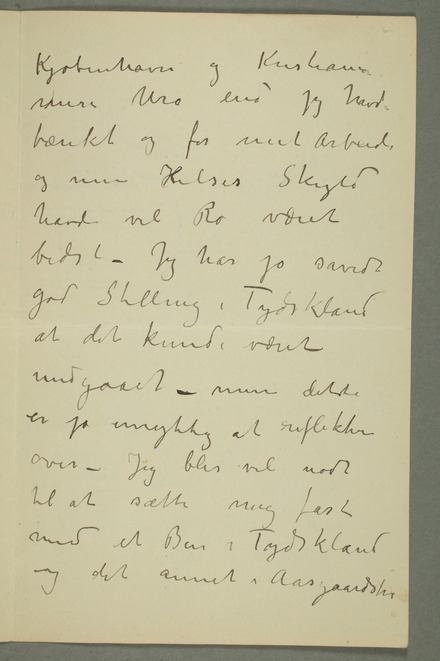 Kjøbenhavn og Kristiania
mere Uro end jeg havde
tænkt og for mit Arbeide
og min Helses Skyld
havde vel Ro været
bedst – Jeg har jo saavidt
god Stilling i Tydskland
at det kunde været
undgaaet – men dette
er jo unyttig at reflektere
over – Jeg blir vel nødt
til at sætte mig fast
med et Ben i Tydskland
og det annet i Aasgaardstr